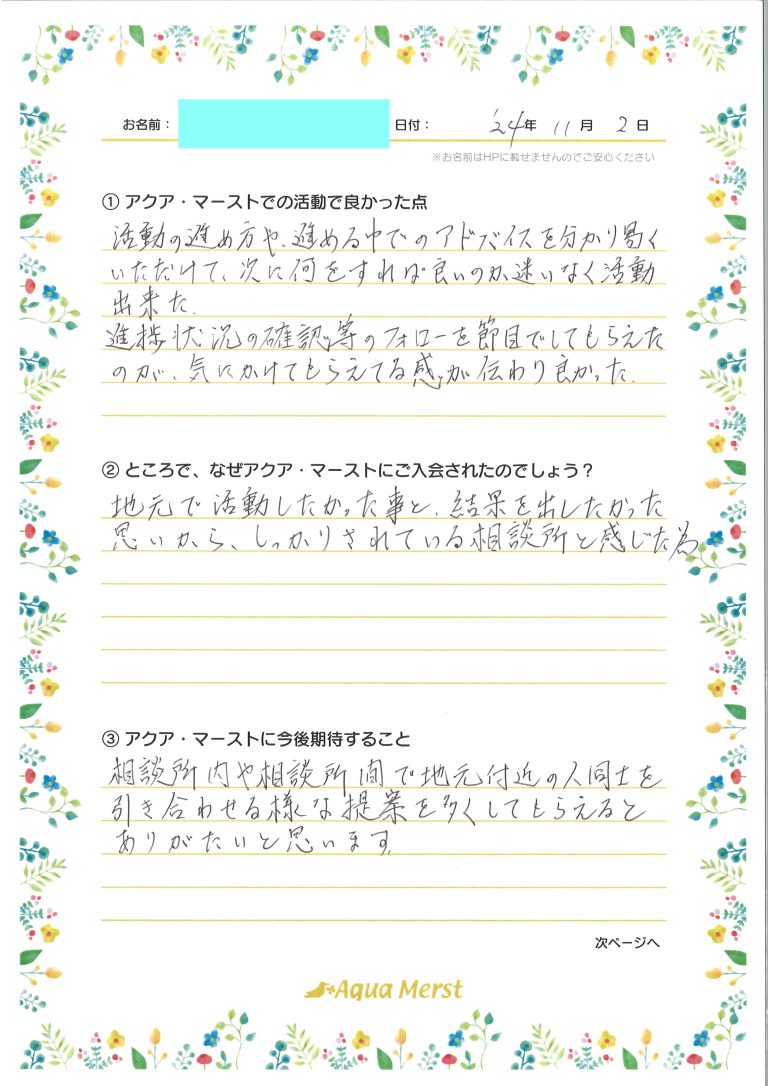 お名前： 日付： '24年 11月 2日
※お名前はHPに載せませんのでご安心ください
① アクア・マーストでの活動で良かった点
活動の進め方や、進める中でのアドバイスを分かり易く
いただけて、次に何をすれば良いのか迷いなく活動
出来た。
進捗状況の確認等のフォローを節目でしてもらえた
のが、気にかけてもらえてる感が伝わり良かった。
② ところで、なぜアクア・マーストにご入会されたのでしょう？
地元で活動したかった事と、結果を出したかった
思いから、しっかりされている相談所と感じた為
③ アクア・マーストに今後期待すること
相談所内や相談所間で地元付近の人同士を
引き合わせる様な提案を多くしてもらえると
ありがたいと思います。
次ページへ
Aqua Merst